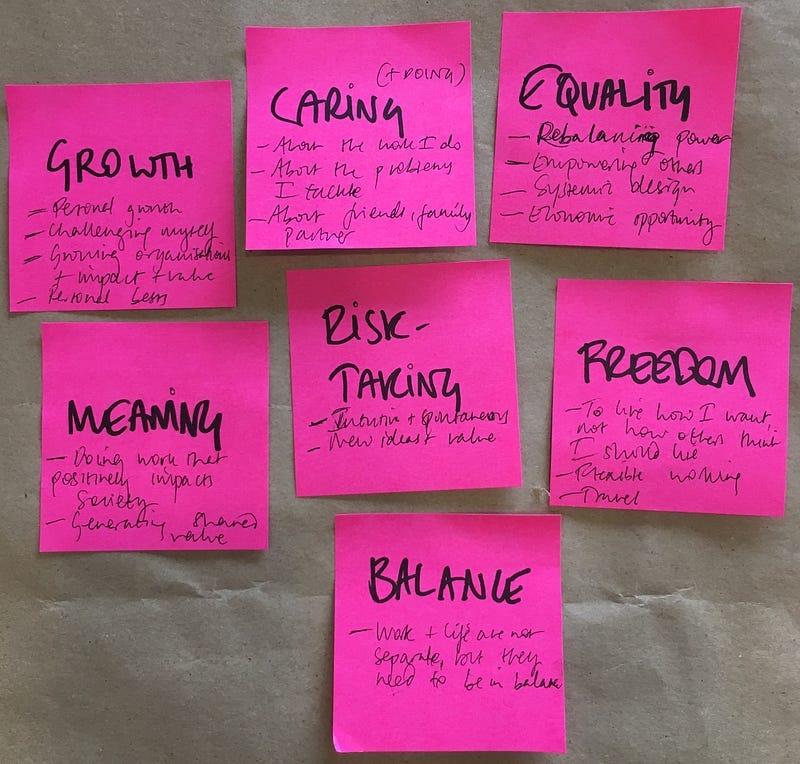 GROWTH
- Personal growth
- Challenging myself
- Growing organisation
+ impact + value
- Personal bests
(+ DOING)
CARING
- About the work I do
- About the problems
I tackle
- About friends, family
partner
EQUALITY
- Rebalancing power
- Empowering others
- Systemic design
- Economic opportunity
MEANING
- Doing work that
positively impacts
society
- Generating shared
value
RISK-
TAKING
- Intuitive + spontaneous
- New ideas + value
FREEDOM
- To live how I want,
not how others think
I should live
- Flexible working
- Travel
BALANCE
- Work + life are not
separate, but they
need to be in balance